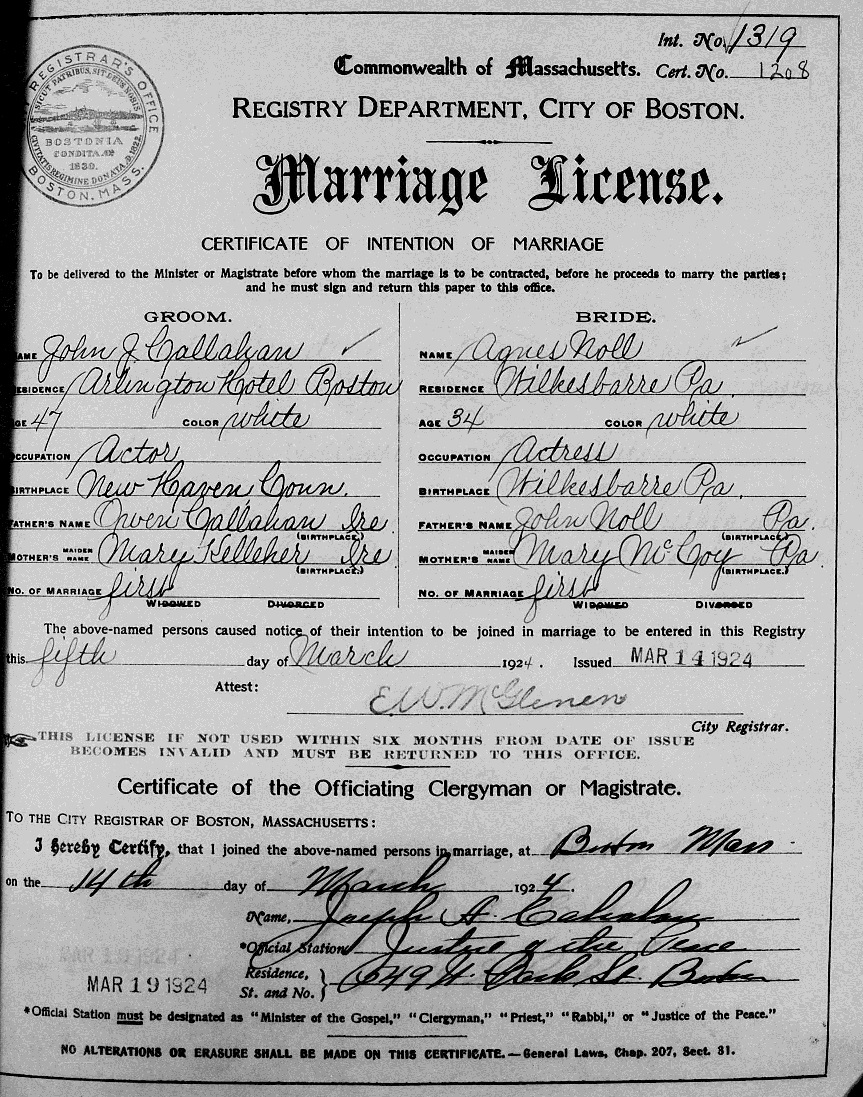 Int. No. 1319
Commonwealth of Massachusetts. Cert. No. 1208
REGISTRAR'S OFFICE
BOSTON, MASS.
SICUT PATRIBUS, SIT DEUS NOBIS
CIVITATIS REGIMINE DONATA, A.D. 1822.
BOSTONIA
CONDITA, A.D.
1630.
REGISTRY DEPARTMENT, CITY OF BOSTON.
Marriage License.
CERTIFICATE OF INTENTION OF MARRIAGE
To be delivered to the Minister or Magistrate before whom the marriage is to be contracted, before he proceeds to marry the parties;
and he must sign and return this paper to this office.
GROOM.
NAME John J. Callahan
RESIDENCE Arlington Hotel Boston
AGE 47 COLOR white
OCCUPATION Actor
BIRTHPLACE New Haven Conn.
FATHER'S NAME Owen Callahan Ire
(BIRTHPLACE.)
MOTHER'S MAIDEN NAME Mary Kelleher Ire
(BIRTHPLACE.)
NO. OF MARRIAGE first
WIDOWED DIVORCED
BRIDE.
NAME Agnes Noll
RESIDENCE Wilkesbarre Pa.
AGE 34 COLOR white
OCCUPATION Actress
BIRTHPLACE Wilkesbarre Pa.
FATHER'S NAME John Noll Pa.
(BIRTHPLACE.)
MOTHER'S MAIDEN NAME Mary McCoy Pa
(BIRTHPLACE.)
NO. OF MARRIAGE first
WIDOWED DIVORCED
The above-named persons caused notice of their intention to be joined in marriage to be entered in this Registry
this fifth day of March 1924. Issued MAR 14 1924
Attest: E.W. McGlenen
City Registrar.
THIS LICENSE IF NOT USED WITHIN SIX MONTHS FROM DATE OF ISSUE
BECOMES INVALID AND MUST BE RETURNED TO THIS OFFICE.
Certificate of the Officiating Clergyman or Magistrate.
TO THE CITY REGISTRAR OF BOSTON, MASSACHUSETTS:
I hereby Certify, that I joined the above-named persons in marriage, at Boston Mass.
on the 14th day of March 1924.
Name, Joseph A.
*Official Station Justice of the Peace
Residence, St. and No. 649 St. Boston
MAR 19 1924
MAR 19 1924
*Official Station must be designated as "Minister of the Gospel," "Clergyman," "Priest," "Rabbi," or "Justice of the Peace."
NO ALTERATIONS OR ERASURE SHALL BE MADE ON THIS CERTIFICATE.—General Laws, Chap. 207, Sect. 31.